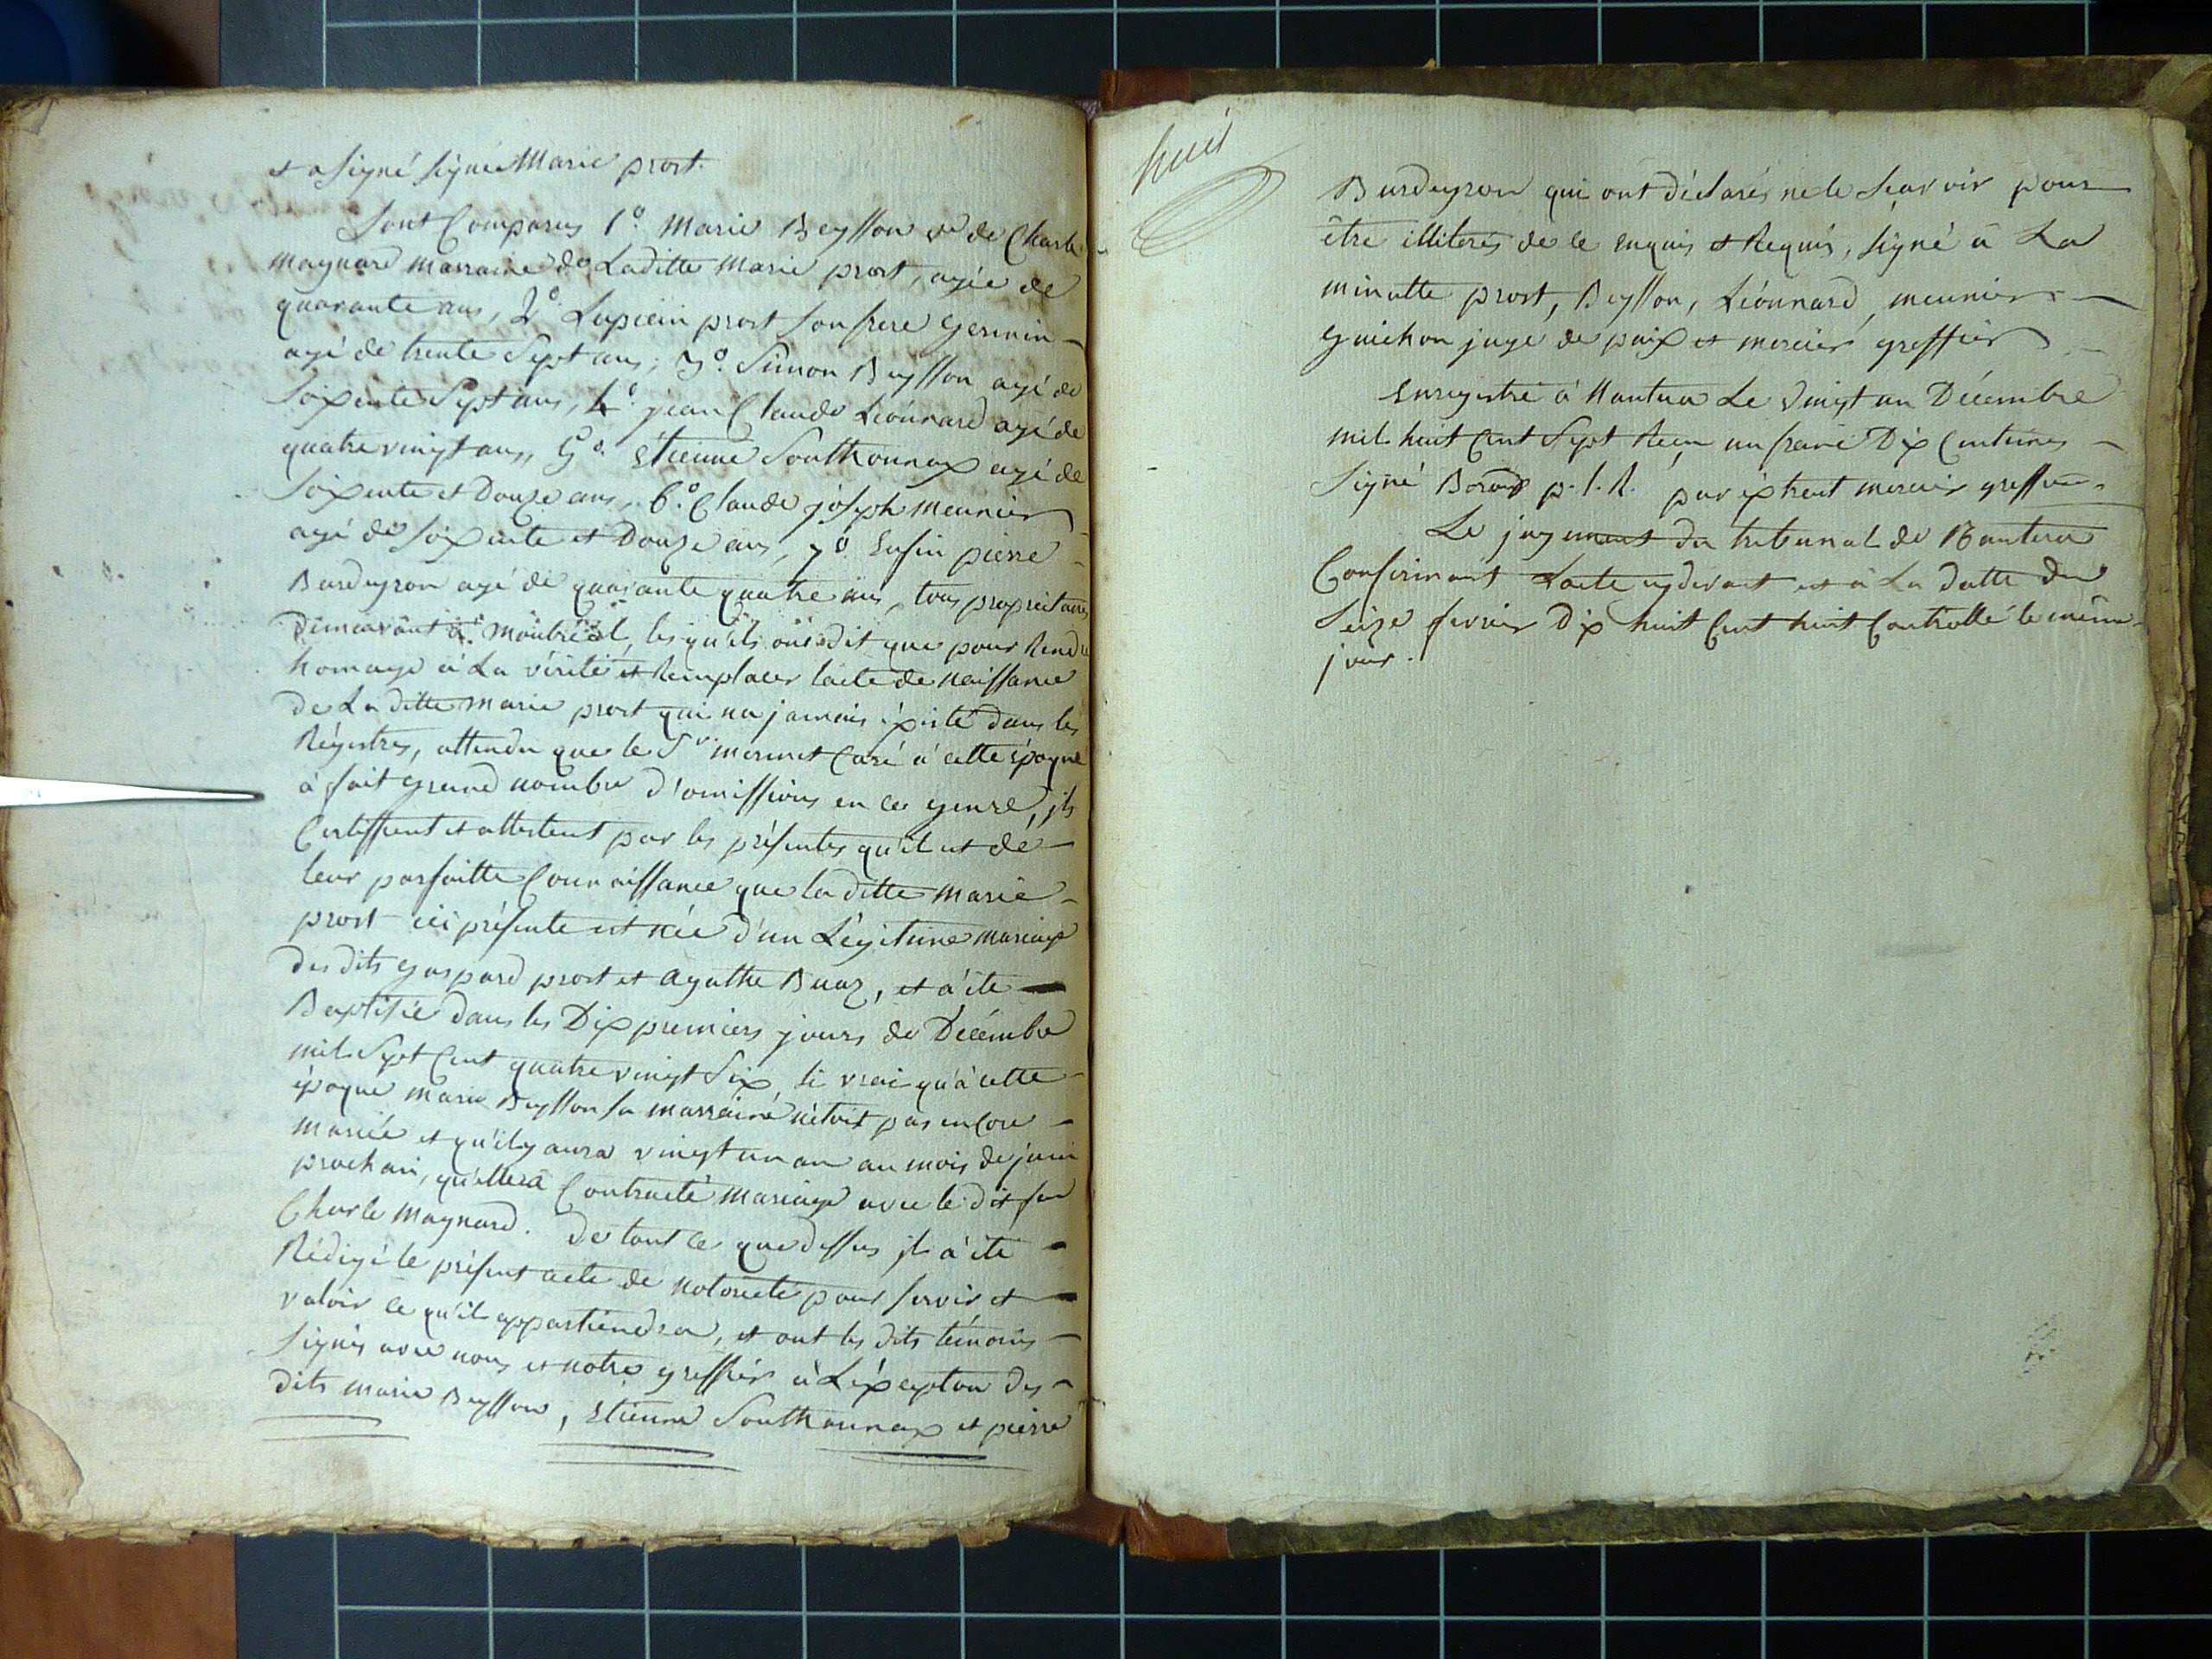 et a signé signée Marie prost.
Sont Comparus 1.° Marie Beysson v.e de Charle
maynard marraine de Laditte Marie prost, agée de
quarante ans, 2.° Lupicin prost son frere Germin
agé de trente Sept ans, 3.° Simon Beysson agé de
Soixente Sept ans, 4.° jean Claude Léonnard agé de
quatre vingt ans, 5.° Etienne Southonnax agé de
Soixente et Douze ans, 6.° Claude joseph meunier
agé de Soixente et Douze ans, 7.° Enfin pierre
Burdeyron agé de quarante quatre ans, tous propriétaires
Demeurant à Montréal, lesqu'els ont dit que pour Rendre
homage à La vérité et Remplacer l'acte de naissance
de Laditte Marie prost qui na jamais éxisté dans les
Régistres, attendu que le S.r mermet Curé à cette époque
à fait grand nombre d'omissions en ce genre, ils
Certiffient et attestent par les présentes qu'il est de
leur parfaitte Connaissance que laditte Marie
prost ici présente est née d'un Légitime mariage
des dits gaspard prost et agathe Buaz, et à été
Baptisée dans les Dix premiers jours de Décembre
mil Sept Cent quatre vingt Six, si vrai qu'à cette
époque marie Beysson sa marraine n'étoit pas encore
mariée et qu'il y aura vingt un an au mois de juin
prochain, qu'elle à Contracté mariage avec le dit feu
Charle maynard. De tout ce que dessus il à été
Rédigé le présent acte de notoriété pour servir et
valoir ce qu'il appartiendra, et ont les dits témoins
Signés avec nous et notre greffier à L'éxception des
dits marie Beysson, Etienne Southonnax et pierre
huit
Burdeyron qui ont déclarés ne le Sçavoir pour
être illiterés de ce enquis et Requis, signé à La
minutte prost, Beysson, Léonnard, meunier
guichon juge de paix et mercier greffier
Enregistré à Nantua Le vingt un Décembre
mil huit Cent Sept Reçu un franc Dix Centimes
Signé p. l. R. par éxtrait mercier greffier.
Le jugement du tribunal de Nantua
Confirmant L'acte cydevant est à La datte du
Seize fevrier Dix huit Cent huit Controllé le même
jour.